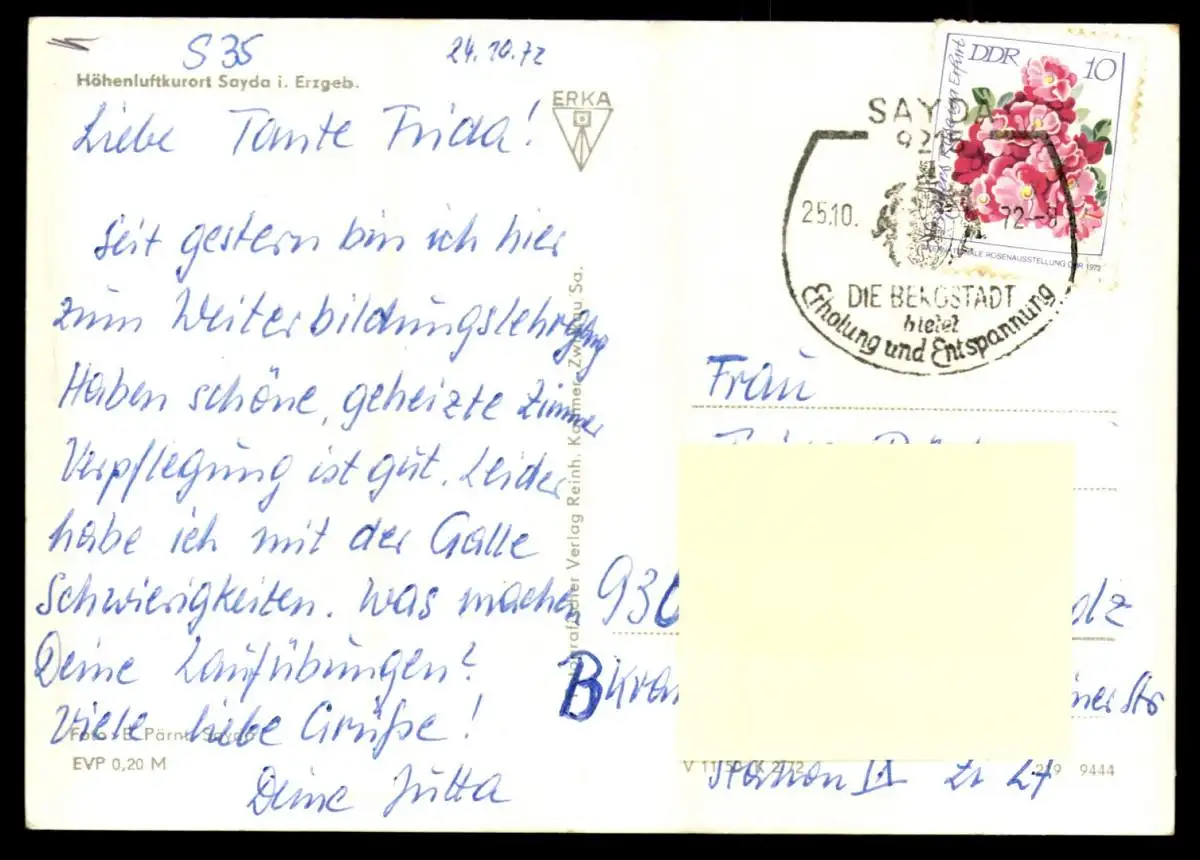 S 35
24.10.72
Höhenluftkurort Sayda i. Erzgeb.
ERKA
Liebe Tante Frida!
Seit gestern bin ich hier
zum Weiterbildungslehrgang
Haben schöne, geheizte Zimmer
Verpflegung ist gut. Leider
habe ich mit der Galle
Schwierigkeiten. Was machen
Deine Laufübungen?
Viele liebe Grüße!
Deine Jutta
Foto: E. Pärnt, Sayda
EVP 0,20 M
Verlag Reinh.
DDR 10
ROSENAUSSTELLUNG DDR 1972
SAYDA
25.10. 72-8
DIE BERGSTADT
bietet
Erholung und Entspannung
Frau
930
olz
B Kran
Station II Zi 27
9444